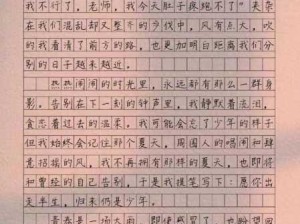 我不行了，老师，我今天肚子疼跑不了”夹杂
在我们混乱却又整齐的步伐中，风有点大，吹
的我看清了前方的路，也更加明白距离我们分
别的日子越来越近。
热热闹闹的时光里，永远都有那么一群身
影，告别在下一刻的钟声里，我静默着流泪，
贪恋着过去的温柔。我可能会忘了少年的样子
但我始终会记住那个夏天，周围人的唱闹和肆
意招摇的风，我不再拥有那样的夏天，也即将
和曾经的自己告别，于是我提笔写下：愿你出
走半生，归来仍是少年。
青春是一场大雨，即使感冒了，也盼望回